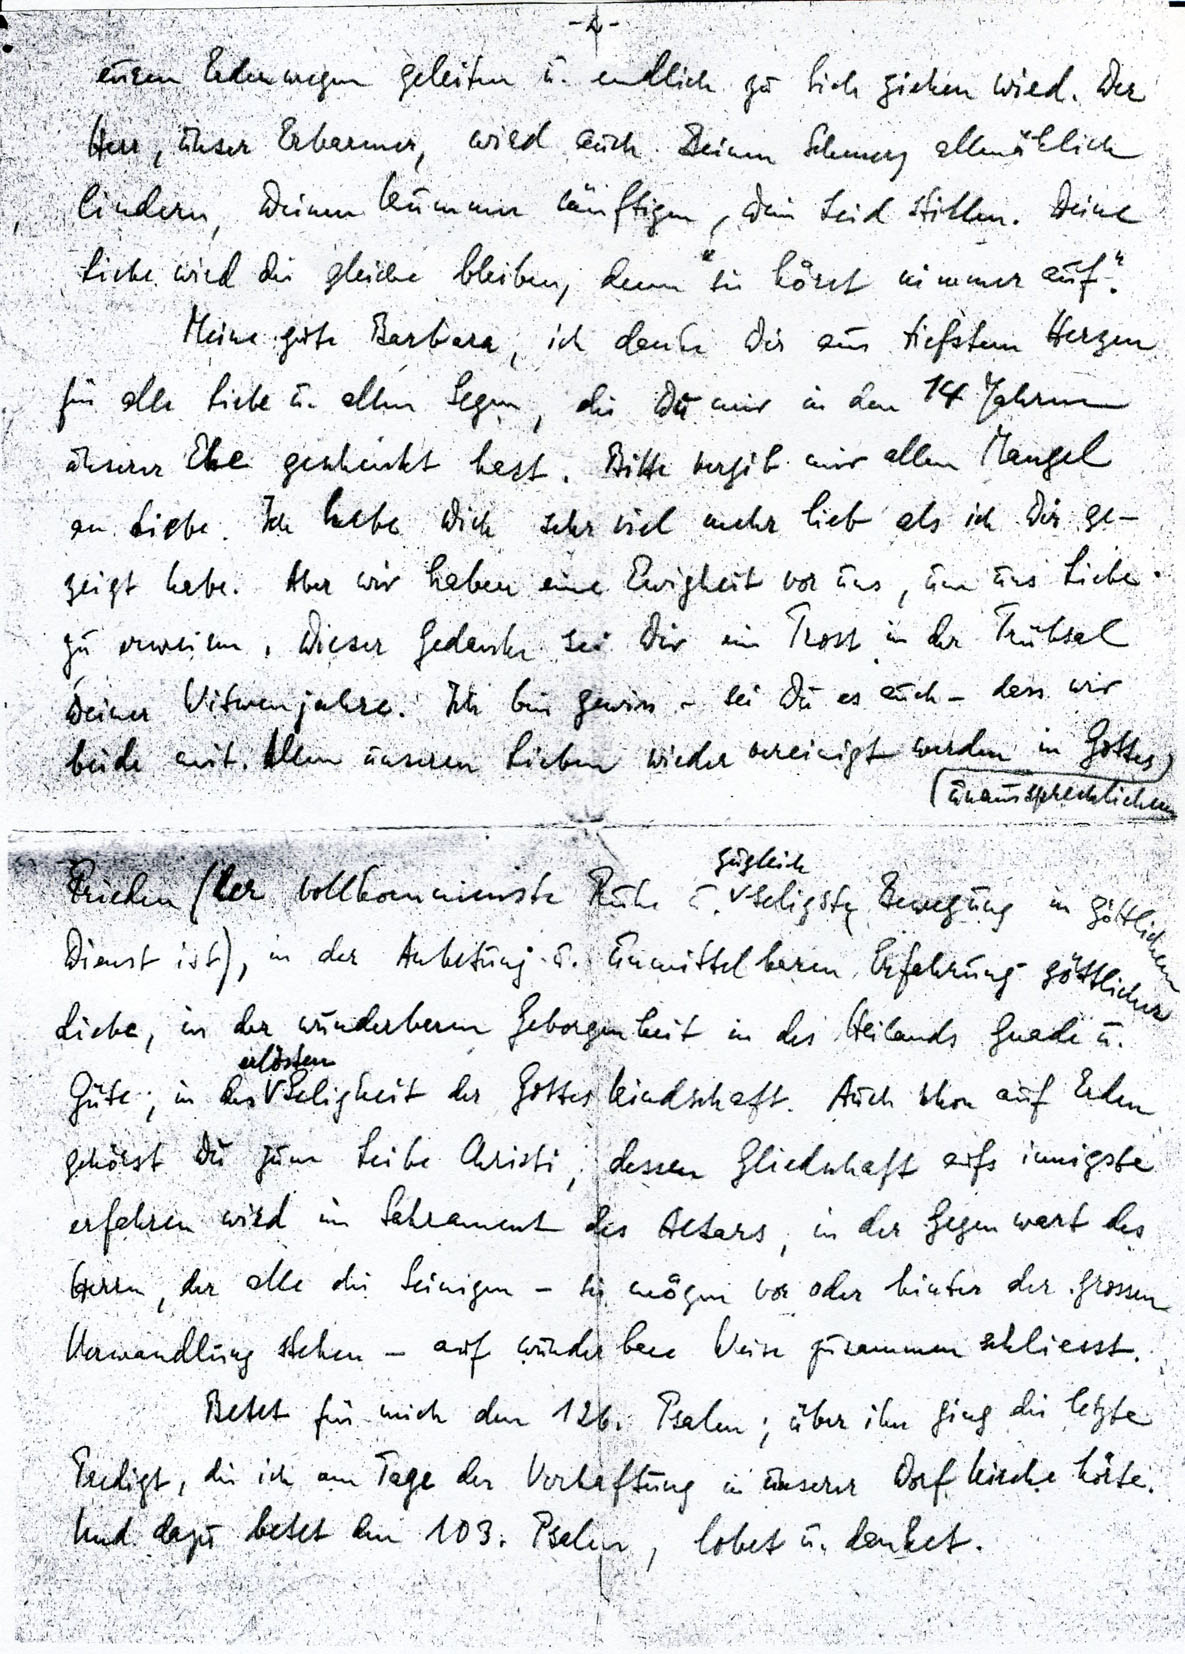 -2-
euren Erdenwegen geleiten u. endlich zu sich ziehen wird. Der
Herr, unser Erbarmer, wird auch Deinen Schmerz allmählich
lindern, Deinen Kummer sänftigen, Dein Leid stillen. Deine
Liebe wird die gleiche bleiben, denn "sie höret nimmer auf".
Meine gute Barbara, ich danke Dir aus tiefstem Herzen
für alle Liebe u. allen Segen, die Du mir in den 14 Jahren
unserer Ehe geschenkt hast. Bitte vergib mir allen Mangel
an Liebe. Ich habe Dich sehr viel mehr lieb als ich Dir ge-
zeigt habe. Aber wir haben eine Ewigkeit vor uns, um uns Liebe
zu erweisen. Dieser Gedanke sei Dir ein Trost in der Trübsal
Deiner Witwenjahre. Ich bin gewiss - sei Du es auch - dass wir
beide mit allen unseren Lieben wieder vereinigt werden in Gottes
unaussprechlichem
Frieden (der vollkommenste Ruhe u. zugleich seligste Bewegung in göttlichem
Dienst ist), in der Anbetung u. unmittelbaren Erfahrung göttlicher
Liebe, in der wunderbaren Geborgenheit in des Heilands Gnade u.
Güte, in der erlösten Seligkeit der Gotteskindschaft. Auch schon auf Erden
gehörst Du zum Leibe Christi, dessen Gliedschaft aufs innigste
erfahren wird im Sakrament des Altars, in der Gegenwart des
Herrn, der alle die Seinigen - sie mögen vor oder hinter der grossen
Verwandlung stehen - auf wunderbare Weise zusammen schliesst.
Betet für mich den 126. Psalm; über ihn ging die letzte
Predigt, die ich am Tage der Verhaftung in unserer Dorfkirche hörte.
Und dazu betet den 103. Psalm, lobet u. danket.